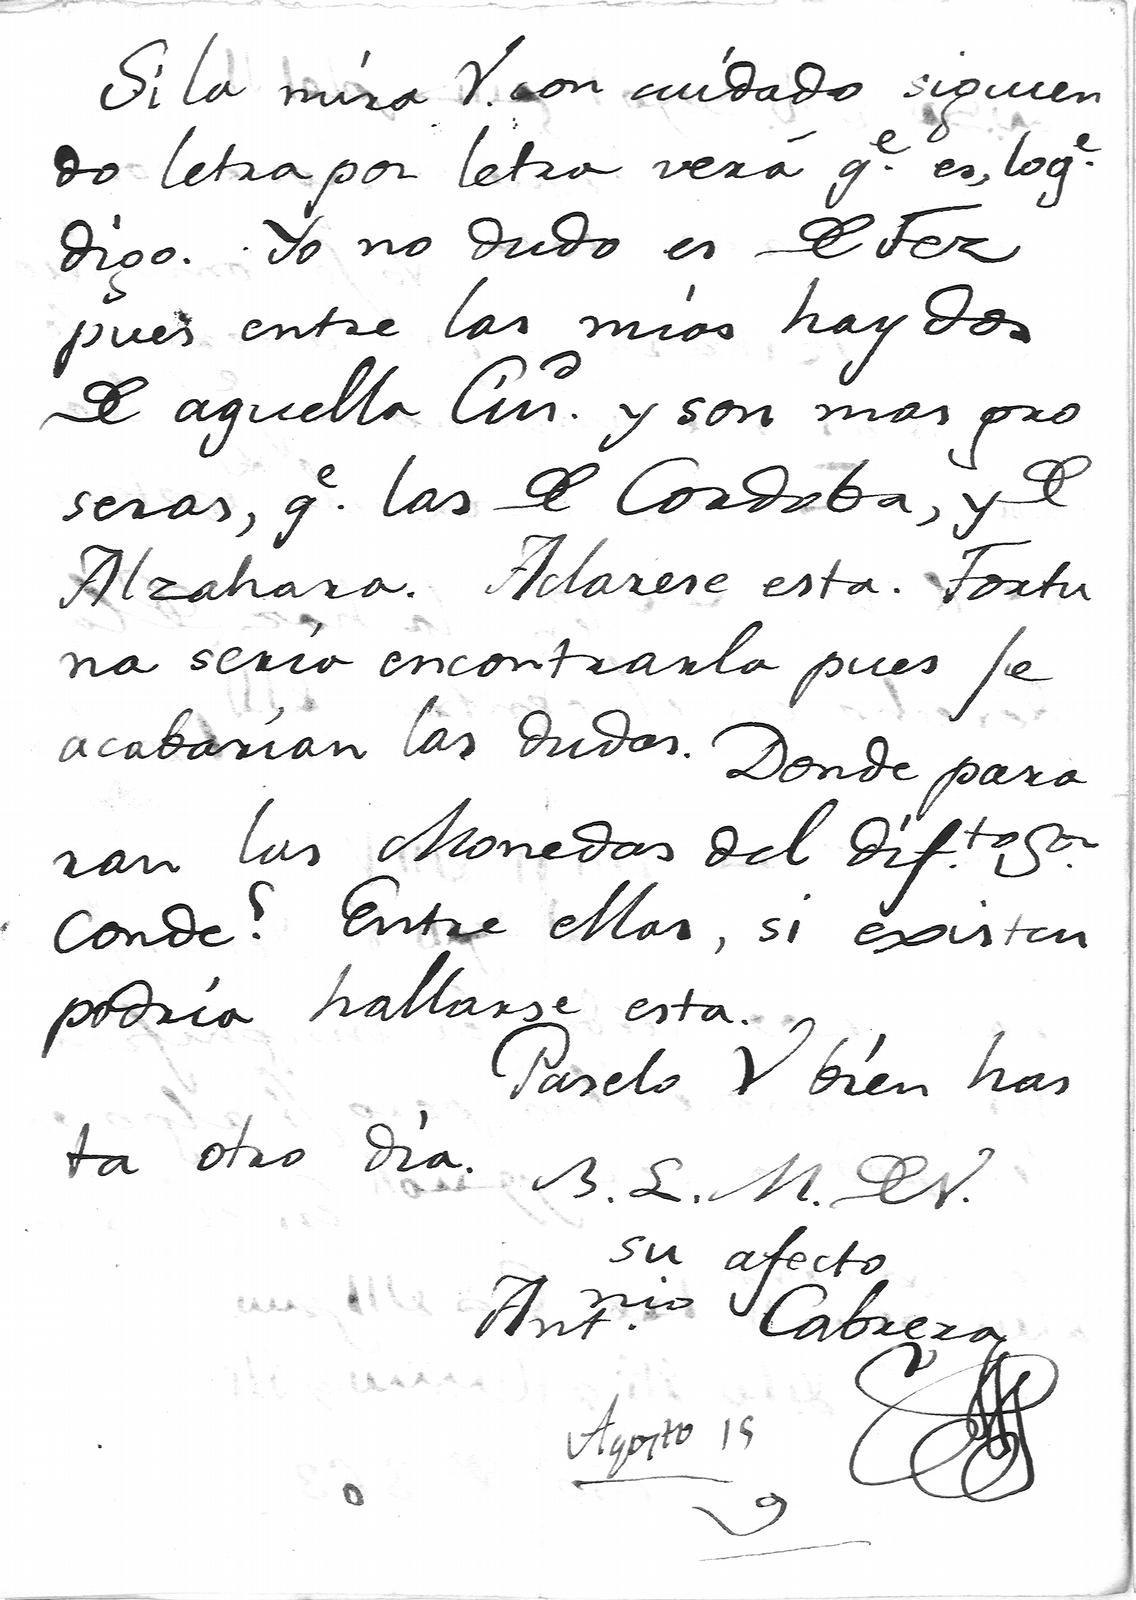 Si la mira V. con cuidado siguien
do letra por letra verá q.e es, lo q.e
digo. Yo no dudo es de Fez
pues entre las mias hay dos
de aquella Ciu.d y son mas gro
seras, q.e las de Cordoba, y de
Alzahara. Aclarese esta. Fortu
na sería encontrarla pues se
acabarían las dudas. Donde para
ran las Monedas del dif.to Sor.
Conde? Entre ellas, si existen
podría hallarse esta.
Paselo V bien has
ta otro día.
B. L. M. de V.
su afecto
Ant.nio Cabrera
Agosto 19